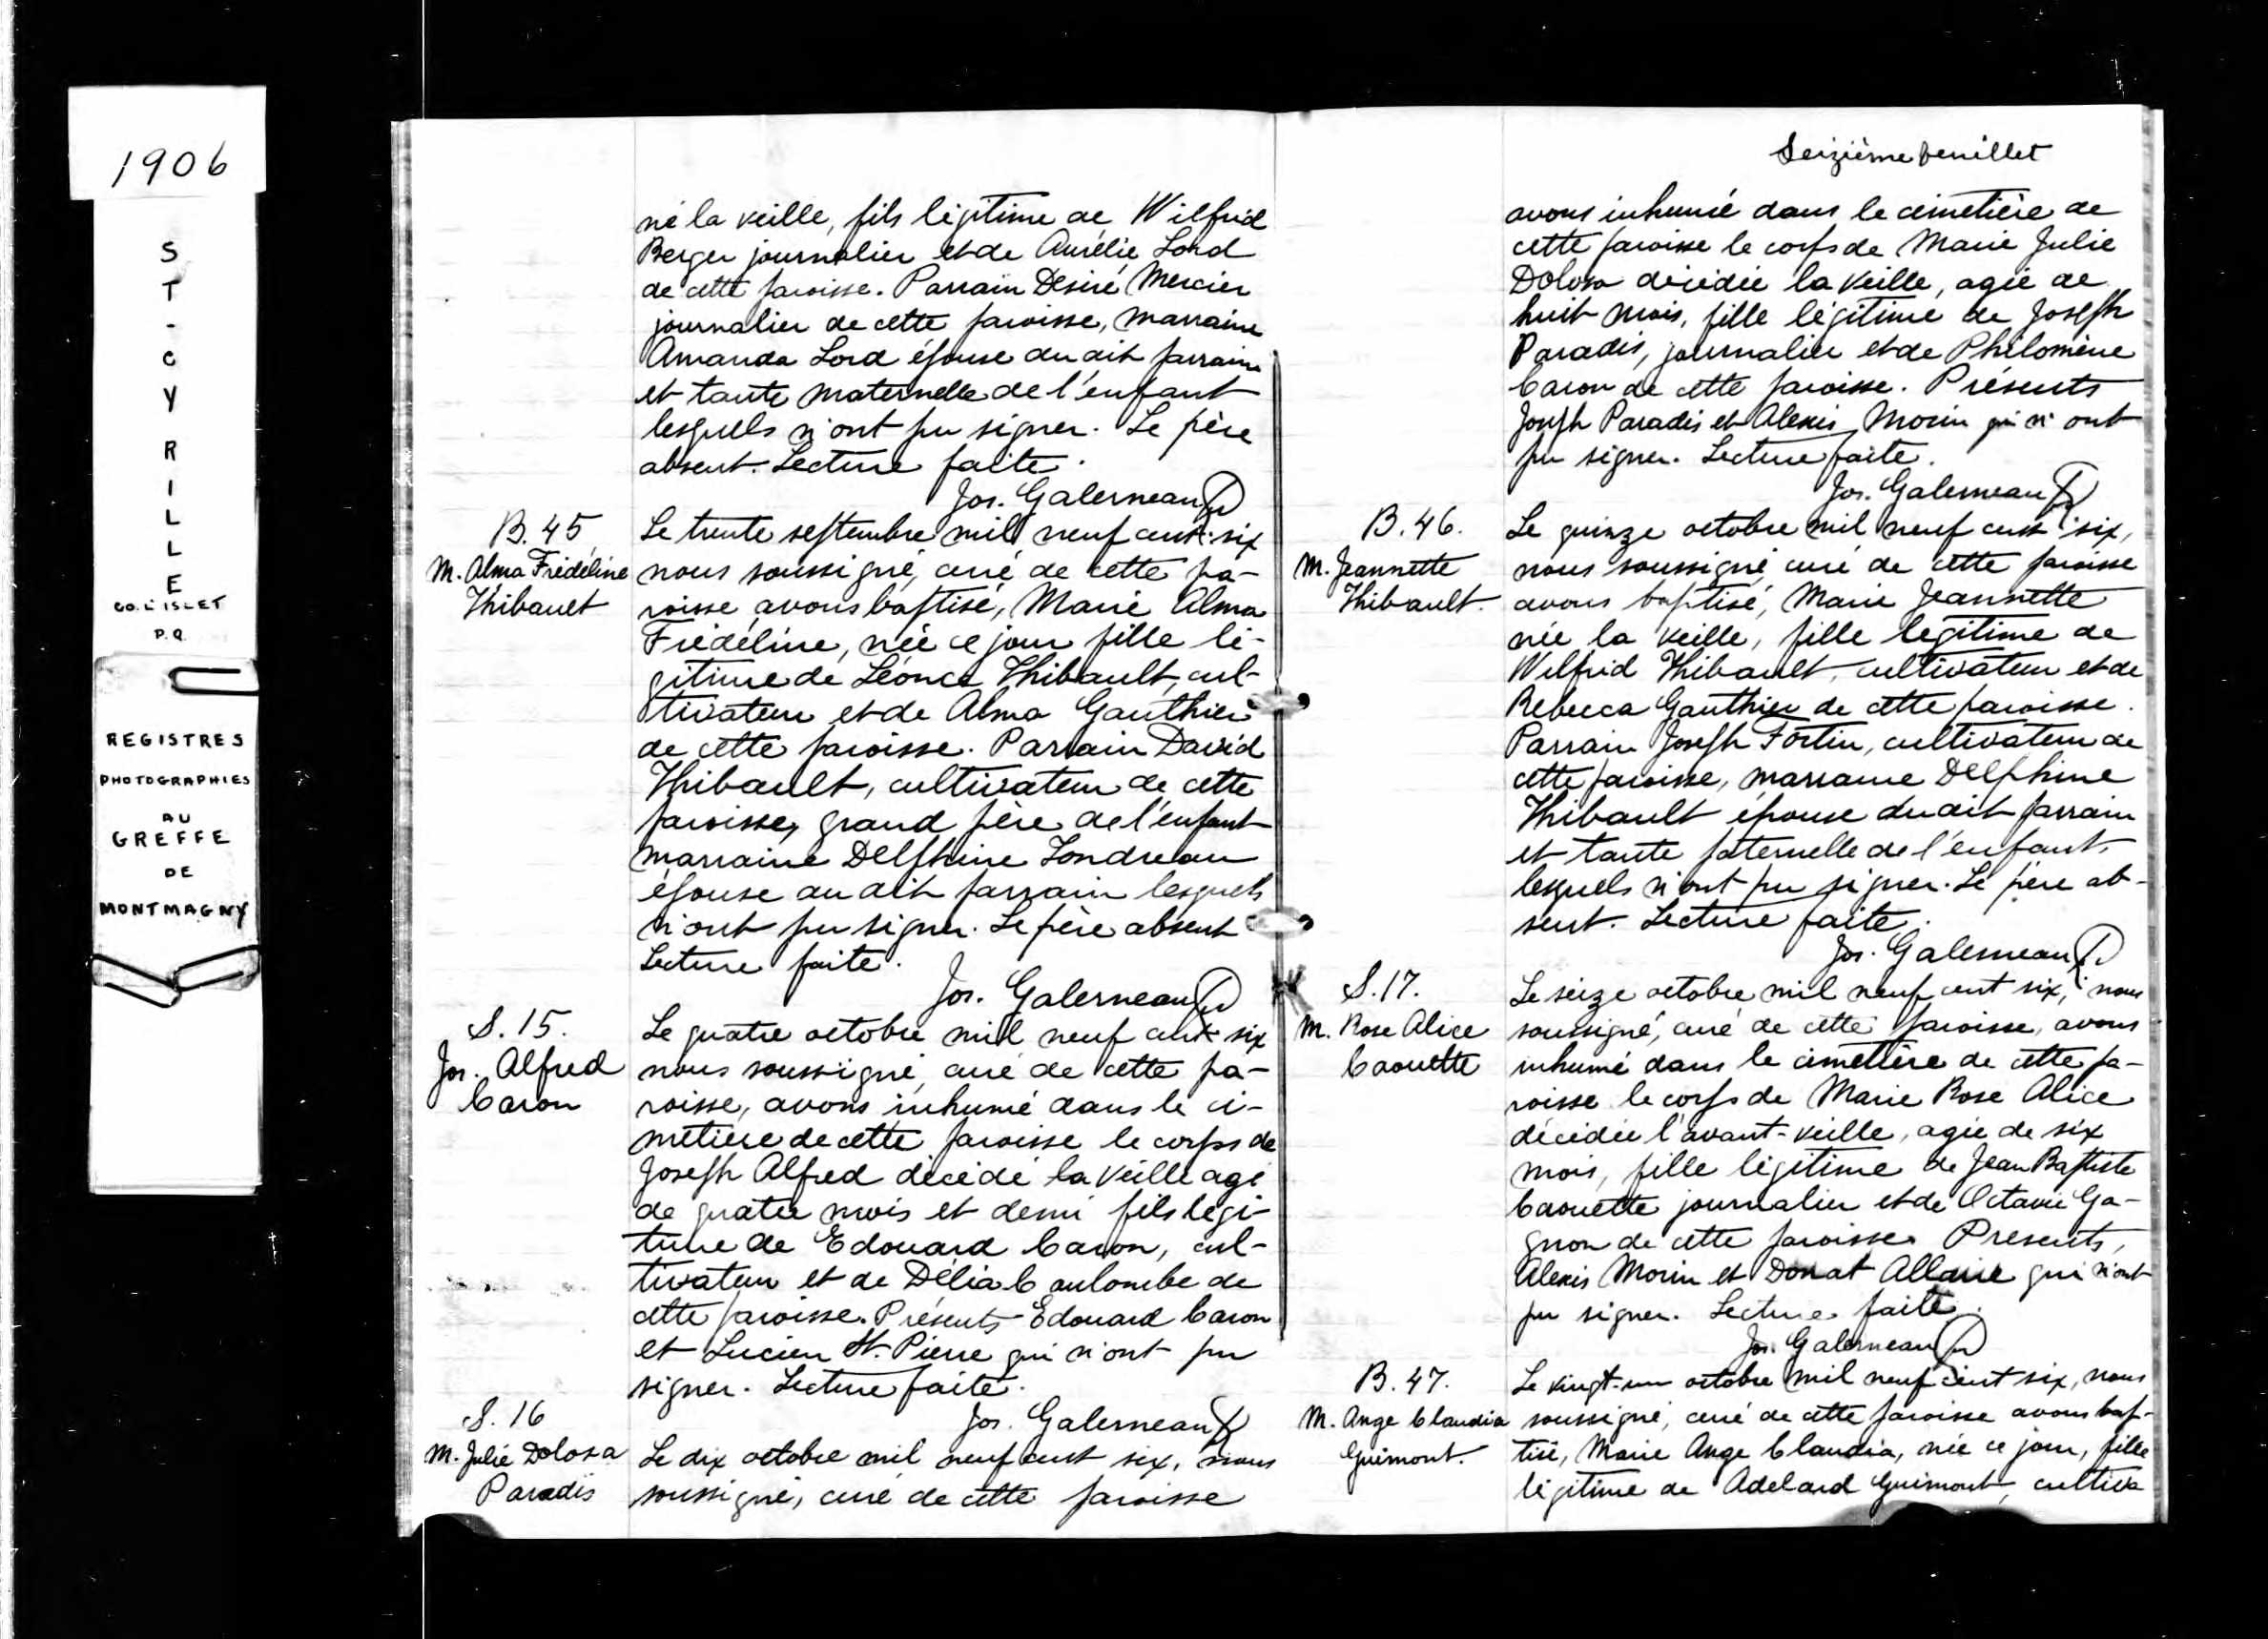 1906
ST-CYRILLE
CO. L'ISLET
P.Q.
REGISTRES
PHOTOGRAPHIES
AU
GREFFE
DE
MONTMAGNY
né la veille, fils légitime de Wilfrid
Berger journalier et de Aurélie Lord
de cette paroisse. Parrain Désiré Mercier
journalier de cette paroisse, marraine
Amanda Lord épouse du dit parrain
et tante maternelle de l'enfant
lesquels n'ont pu signer. Le père
absent. Lecture faite.
Jos. Galerneau
B. 45
M. Alma Frédéline
Thibault
Le trente septembre mil neuf cent six
nous soussigné, curé de cette pa-
roisse avons baptisé, Marie Alma
Frédéline, née ce jour fille lé-
gitime de Léonce Thibault, cul-
tivateur et de Alma Gauthier
de cette paroisse. Parrain David
Thibault, cultivateur de cette
paroisse, grand père de l'enfant
marraine Delphine Londreau
épouse du dit parrain lesquels
n'ont pu signer. Le père absent
Lecture faite.
Jos. Galerneau
S. 15.
Jos. Alfred
Caron
Le quatre octobre mil neuf cent six
nous soussigné, curé de cette pa-
roisse, avons inhumé dans le ci-
metière de cette paroisse le corps de
Joseph Alfred décédé la veille agé
de quatre mois et demi fils légi-
time de Edouard Caron, cul-
tivateur et de Délia Coulombe de
cette paroisse. Présents Edouard Caron
et Lucien St. Pierre qui n'ont pu
signer. Lecture faite.
Jos. Galerneau
S. 16
M. Julie Dolosa
Paradis
Le dix octobre mil neuf cent six, nous
soussigné, curé de cette paroisse
Seizième feuillet
avons inhumé dans le cimetière de
cette paroisse le corps de Marie Julie
Dolosa décédée la veille, agée de
huit mois, fille légitime de Joseph
Paradis, journalier et de Philomène
Caron de cette paroisse. Présents
Joseph Paradis et Alexis Morin qui n'ont
pu signer. Lecture faite.
Jos. Galerneau
B. 46.
M. Jeannette
Thibault.
Le quinze octobre mil neuf cent six,
nous soussigné curé de cette paroisse
avons baptisé, Marie Jeannette
née la veille, fille légitime de
Wilfrid Thibault, cultivateur et de
Rebecca Gauthier de cette paroisse.
Parrain Joseph Fortin, cultivateur de
cette paroisse, marraine Delphine
Thibault épouse du dit parrain
et tante paternelle de l'enfant,
lesquels n'ont pu signer. Le père ab-
sent. Lecture faite.
Jos. Galerneau
S. 17.
M. Rose Alice
Caouette
Le seize octobre mil neuf cent six, nous
soussigné, curé de cette paroisse, avons
inhumé dans le cimetière de cette pa-
roisse le corps de Marie Rose Alice
décédée l'avant-veille, agée de six
mois, fille légitime de Jean Baptiste
Caouette journalier et de Octavie Ga-
gnon de cette paroisse. Présents,
Alexis Morin et Donat Allaire qui n'ont
pu signer. Lecture faite.
Jos. Galerneau
B. 47.
M. Ange Claudia
Guimont.
Le vingt-un octobre mil neuf cent six, nous
soussigné, curé de cette paroisse avons bap-
tisé, Marie Ange Claudia, née ce jour, fille
légitime de Adelard Guimont, cultiva